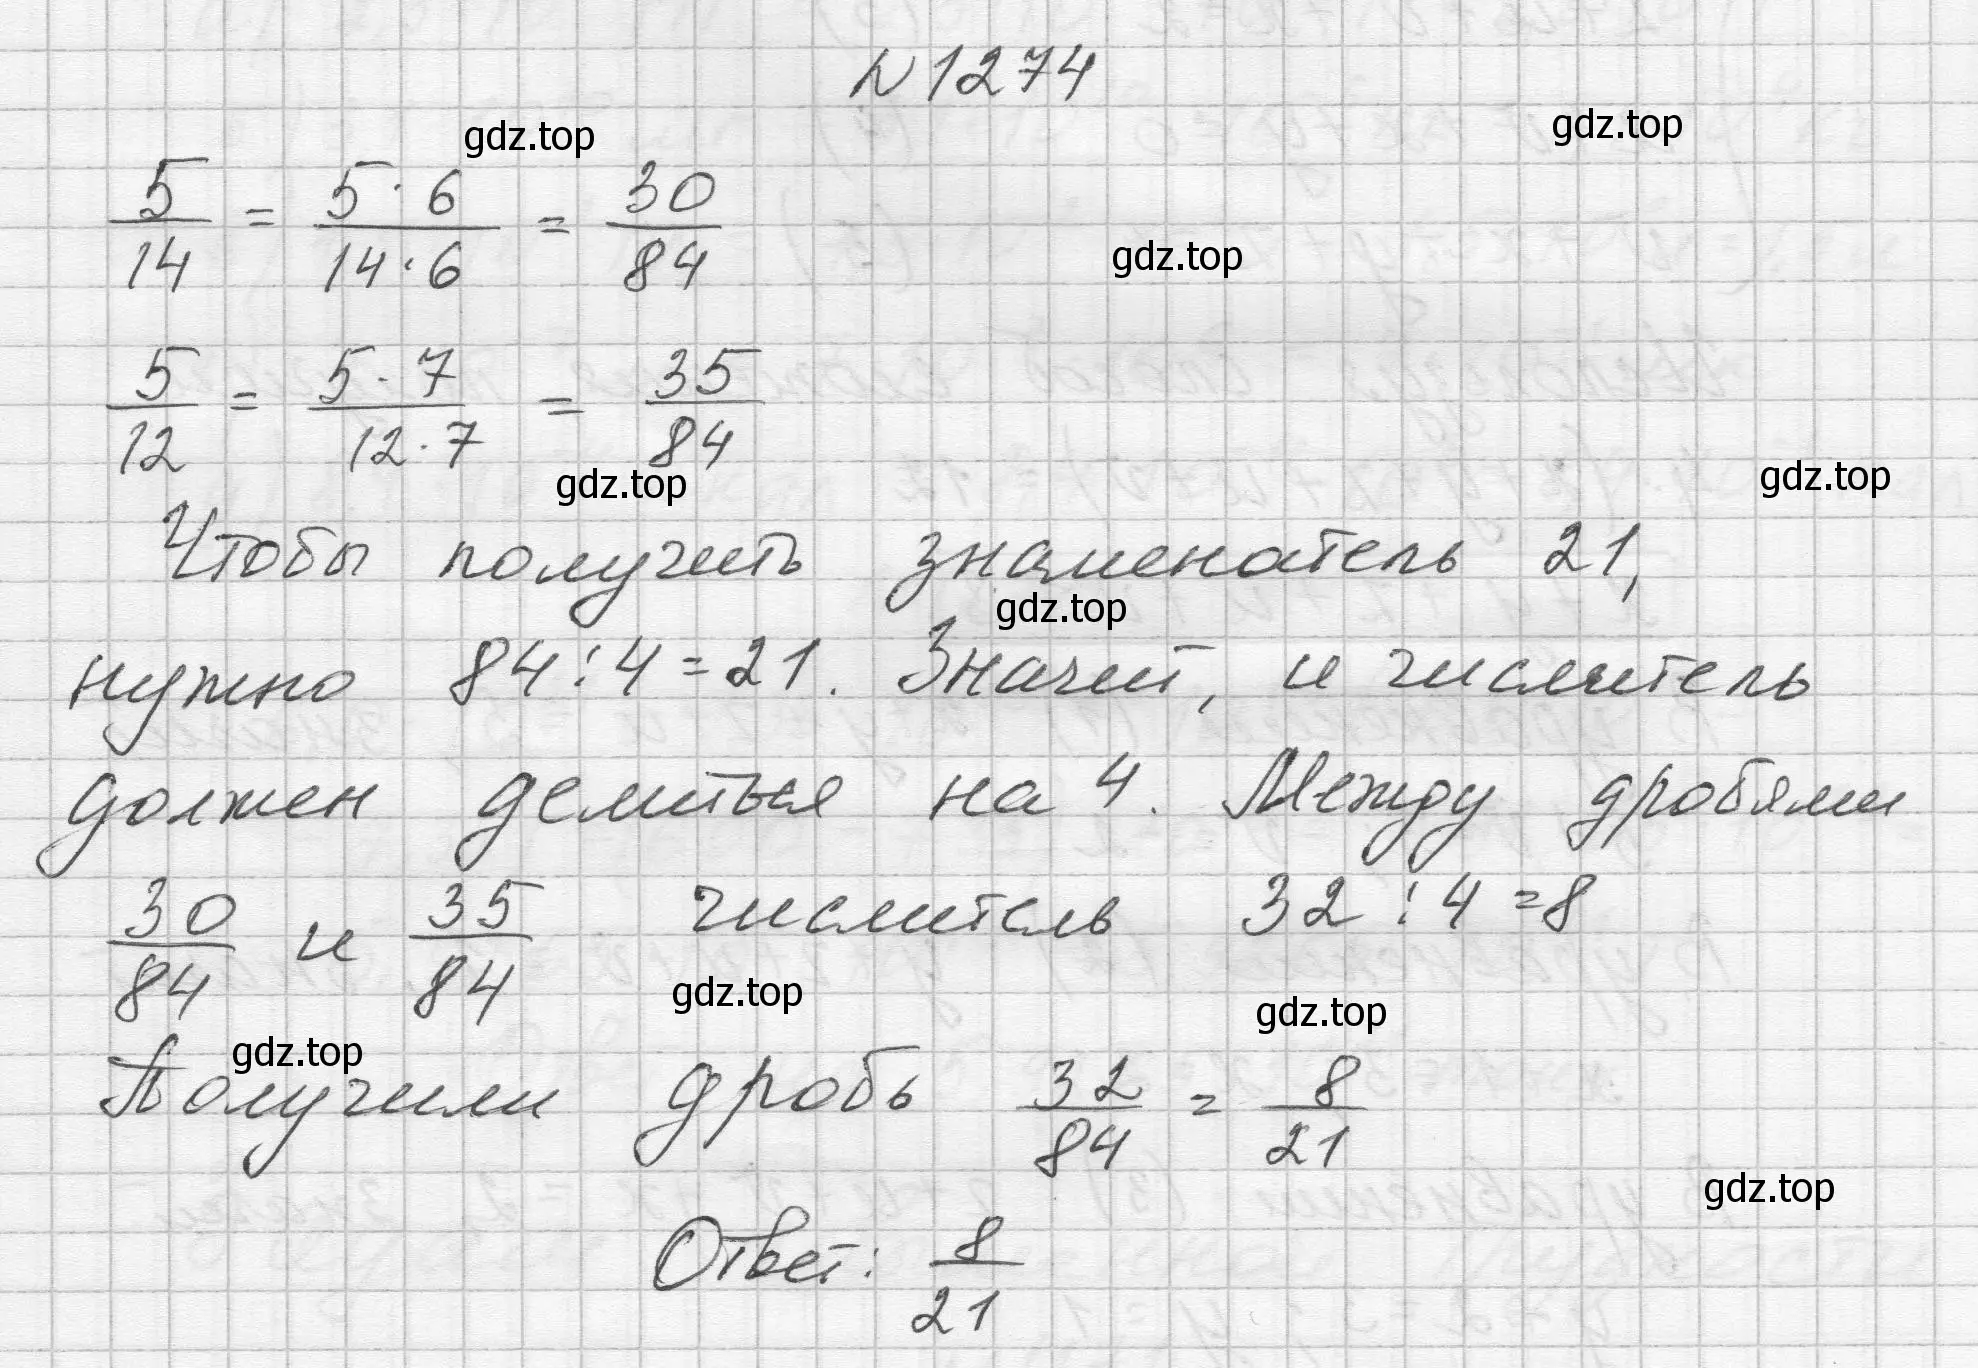 № 1274
gdz.top
gdz.top
5/14 = 5·6/14·6 = 30/84
gdz.top
5/12 = 5·7/12·7 = 35/84
gdz.top
gdz.top
Чтобы получить знаменатель 21,
gdz.top
нужно 84:4=21. Значит, и числитель
должен делиться на 4. Между дробями
30/84 и 35/84 числитель 32:4=8
gdz.top
gdz.top
gdz.top
Получили дробь 32/84 = 8/21
gdz.top
Ответ: 8/21